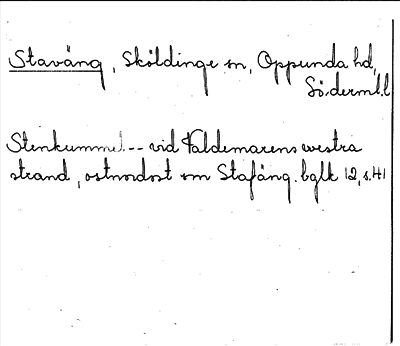 Staväng, Sköldinge sn, Oppunda hd,
Söderml. l
Stenkummel -- vid Valdemarens westra
strand, ostnordost om Stafäng. bglk 12, s. 41